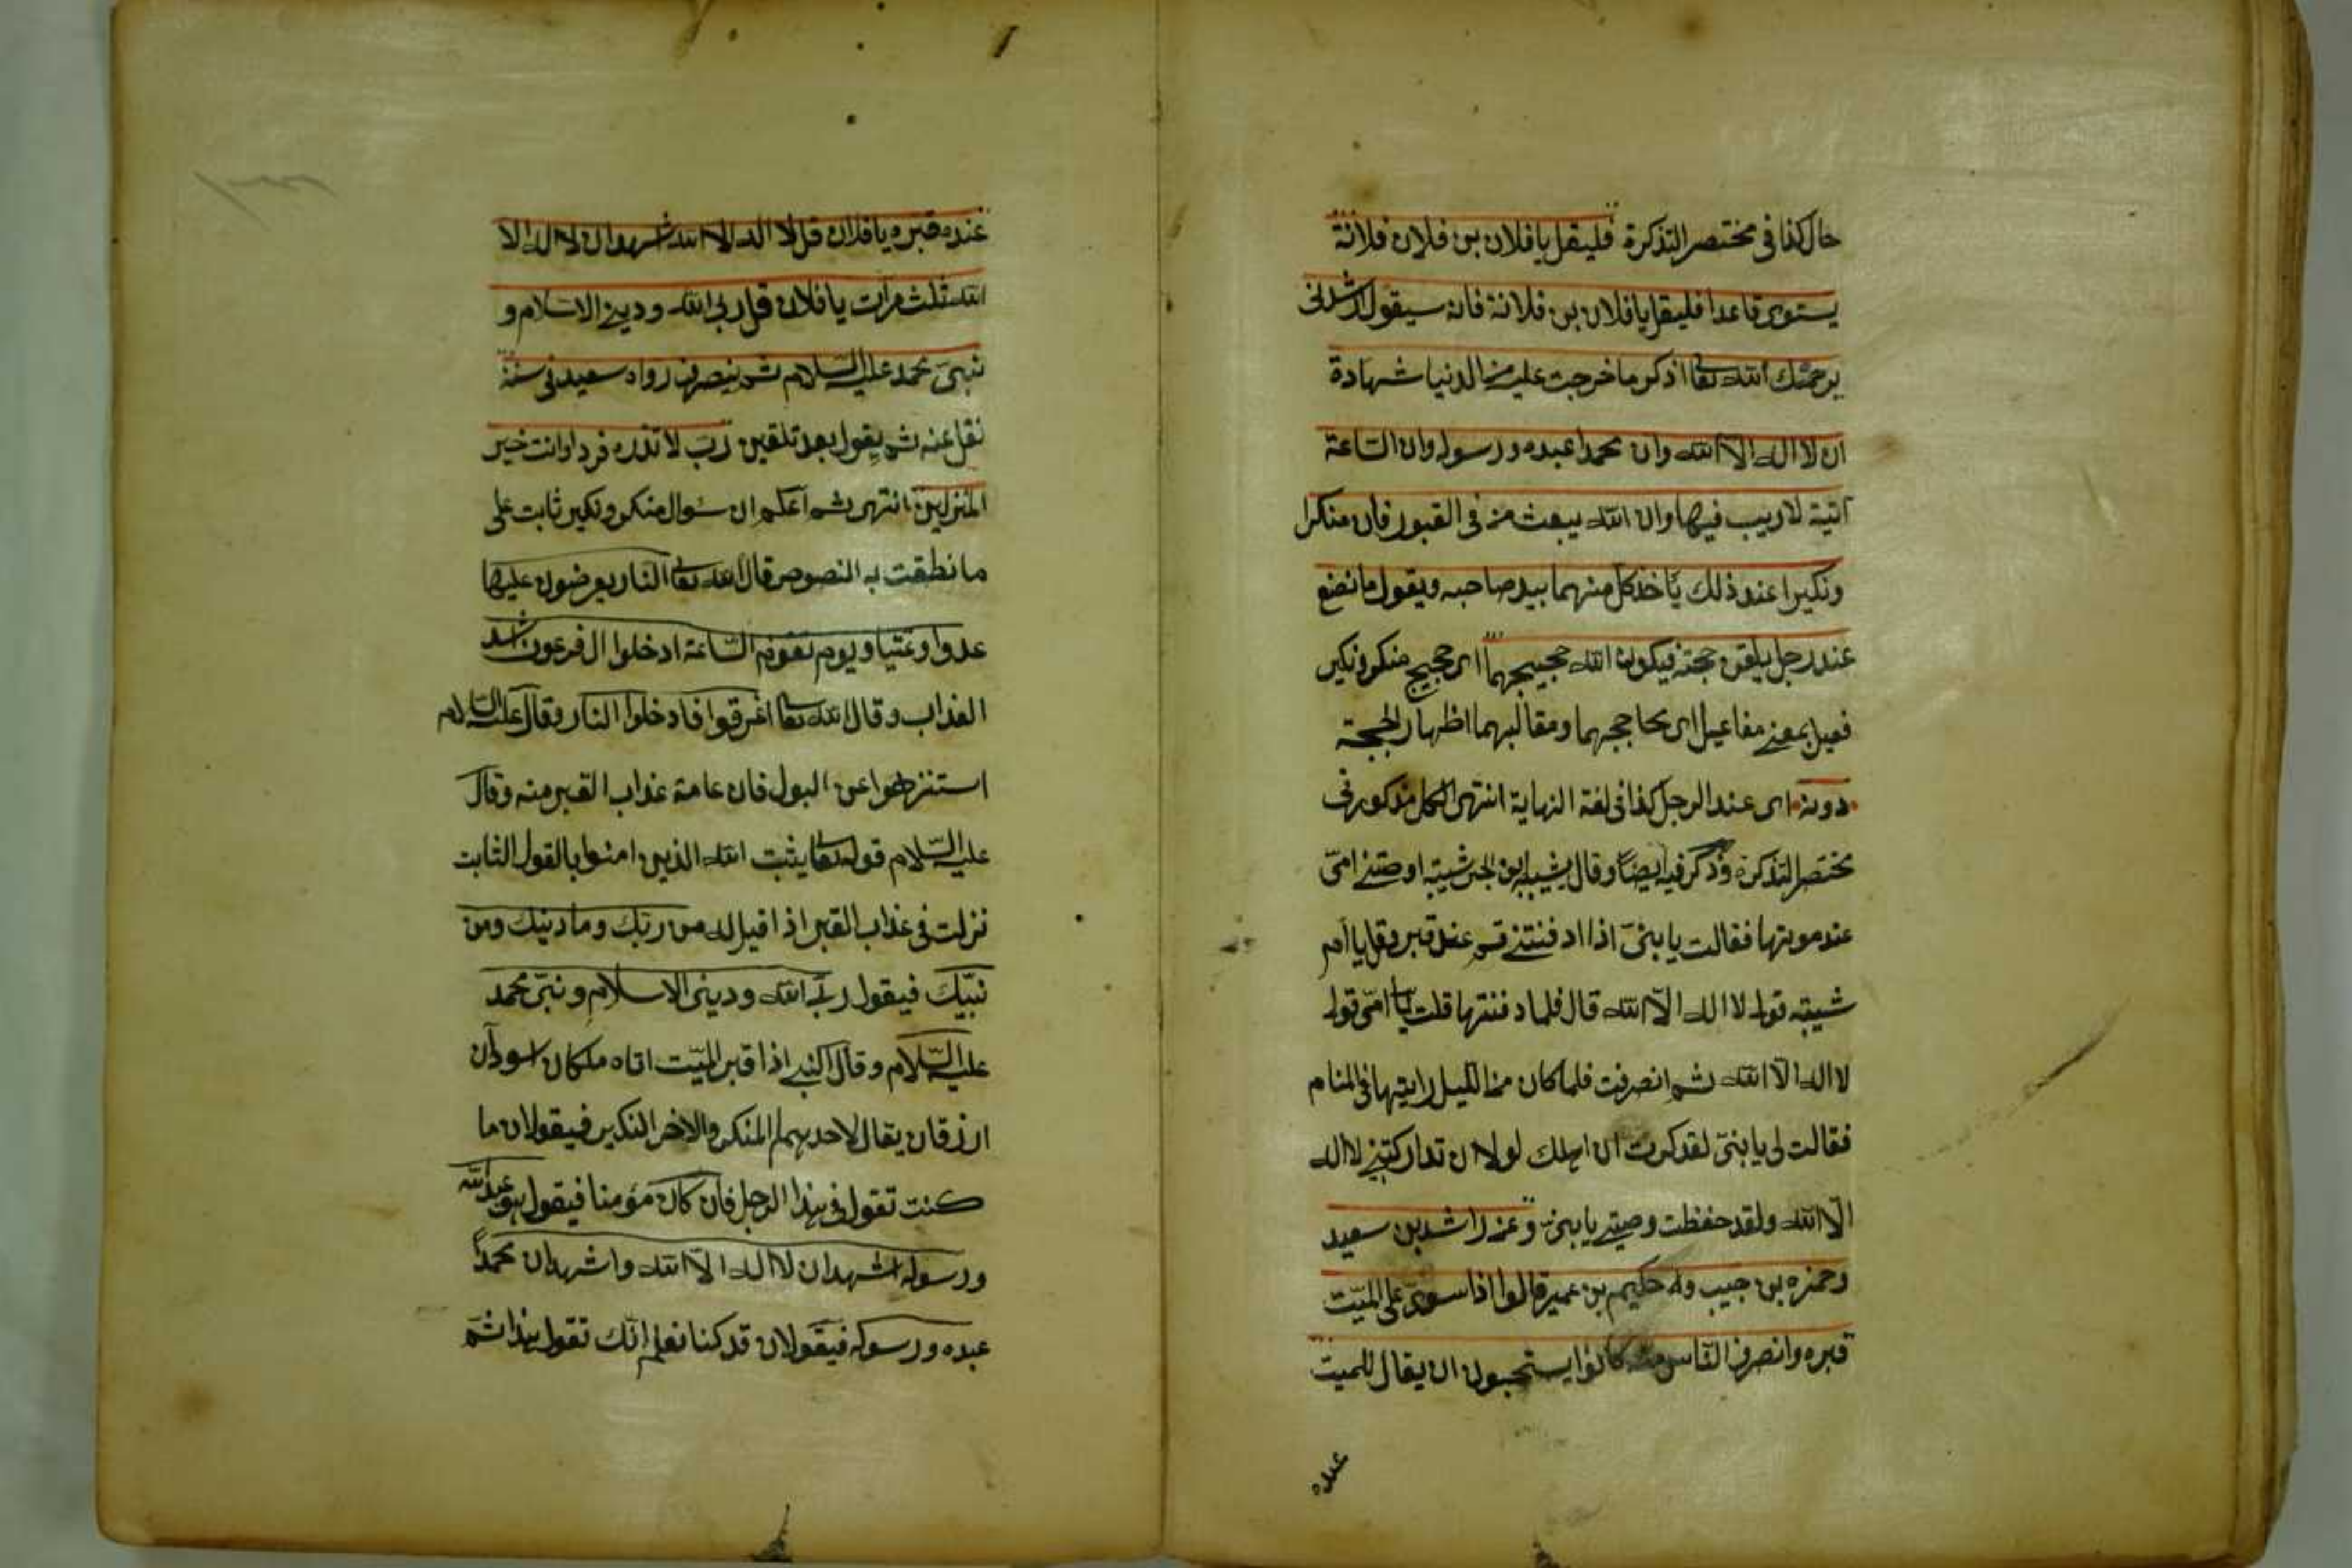 حال كذا فى مختصر التذكرة فليقل يا فلان بن فلان فلانة
يستوى قاعدا فليقل يا فلان بن فلانة فانه سيقول ارشدنى
يرحمك الله تعالى اذكر ما خرجت عليه من الدنيا شهادة
ان لا اله الا الله وان محمدا عبده ورسوله وان الساعة
اتية لا ريب فيها وان الله يبعث من فى القبور فان منكرا
ونكيرا عند ذلك يأخذ كل منهما بيد صاحبه ويقول ما نضع
عند رجل يلقن حجته فيكون الله حجيجهما اى حجيج منكر ونكير
فعيل بمعنى مفاعيل اى يحاججهما ومقالبهما اظهار الحجة
دونه اى عند الرجل كذا فى لغة النهاية انتهى الكل مذكور فى
مختصر التذكرة وذكر فيه ايضا وقال شيبة بن ابى شيبة اوصتنى امى
عند موتها فقالت يا بنى اذا ادفنتنى قم عند قبرى وقل يا ام
شيبة قول لا اله الا الله قال فلما دفنتها قلت يا امى قول
لا اله الا الله ثم انصرفت فلما كان من الليل رايتها فى المنام
فقالت لى يا بنى لقد كدت ان اهلك لولا ان تداركتنى لا اله
الا الله ولقد حفظت وصيتى يا بنى وعن راشد بن سعيد
وحمزه بن حبيب وله حكيم بن عمير قالوا اذا سوى على الميت
قبره وانصرف الناس منه كانوا يستحبون ان يقال للميت
عنده
عنده قبره يا فلان قل لا اله الا الله اشهد ان لا اله الا
الله ثلث مرات يا فلان قل ربى الله ودينى الاسلام و
نبيى محمد عليه السلام ثم ينصرف رواه سعيد فى سننه
نقل عنه ثم يقول بعد تلقين رب لا تذره فردا وانت خير
المنزلين انتهى ثم اعلم ان سؤال منكر ونكير ثابت على
ما نطقت به النصوص قال الله تعالى النار يعرضون عليها
عدوا وعشيا ويوم تقوم الساعة ادخلوا ال فرعون اشد
العذاب وقال الله تعالى اغرقوا فادخلوا النار وقال عليه السلام
استنزهوا عن البول فان عامة عذاب القبر منه وقال
عليه السلام قوله تعالى يثبت الله الذين امنوا بالقول الثابت
نزلت فى عذاب القبر اذا قيل له من ربك وما دينك ومن
نبيك فيقول ربى الله ودينى الاسلام ونبى محمد
عليه السلام وقال النبى اذا قبر الميت اتاه ملكان اسودان
ازرقان يقال لاحدهما المنكر والاخر النكير فيقولان ما
كنت تقول فى هذا الرجل فان كان مؤمنا فيقول هو عبد الله
ورسوله اشهد ان لا اله الا الله واشهد ان محمدا
عبده ورسوله فيقولان قد كنا نعلم انك تقول هذا ثم